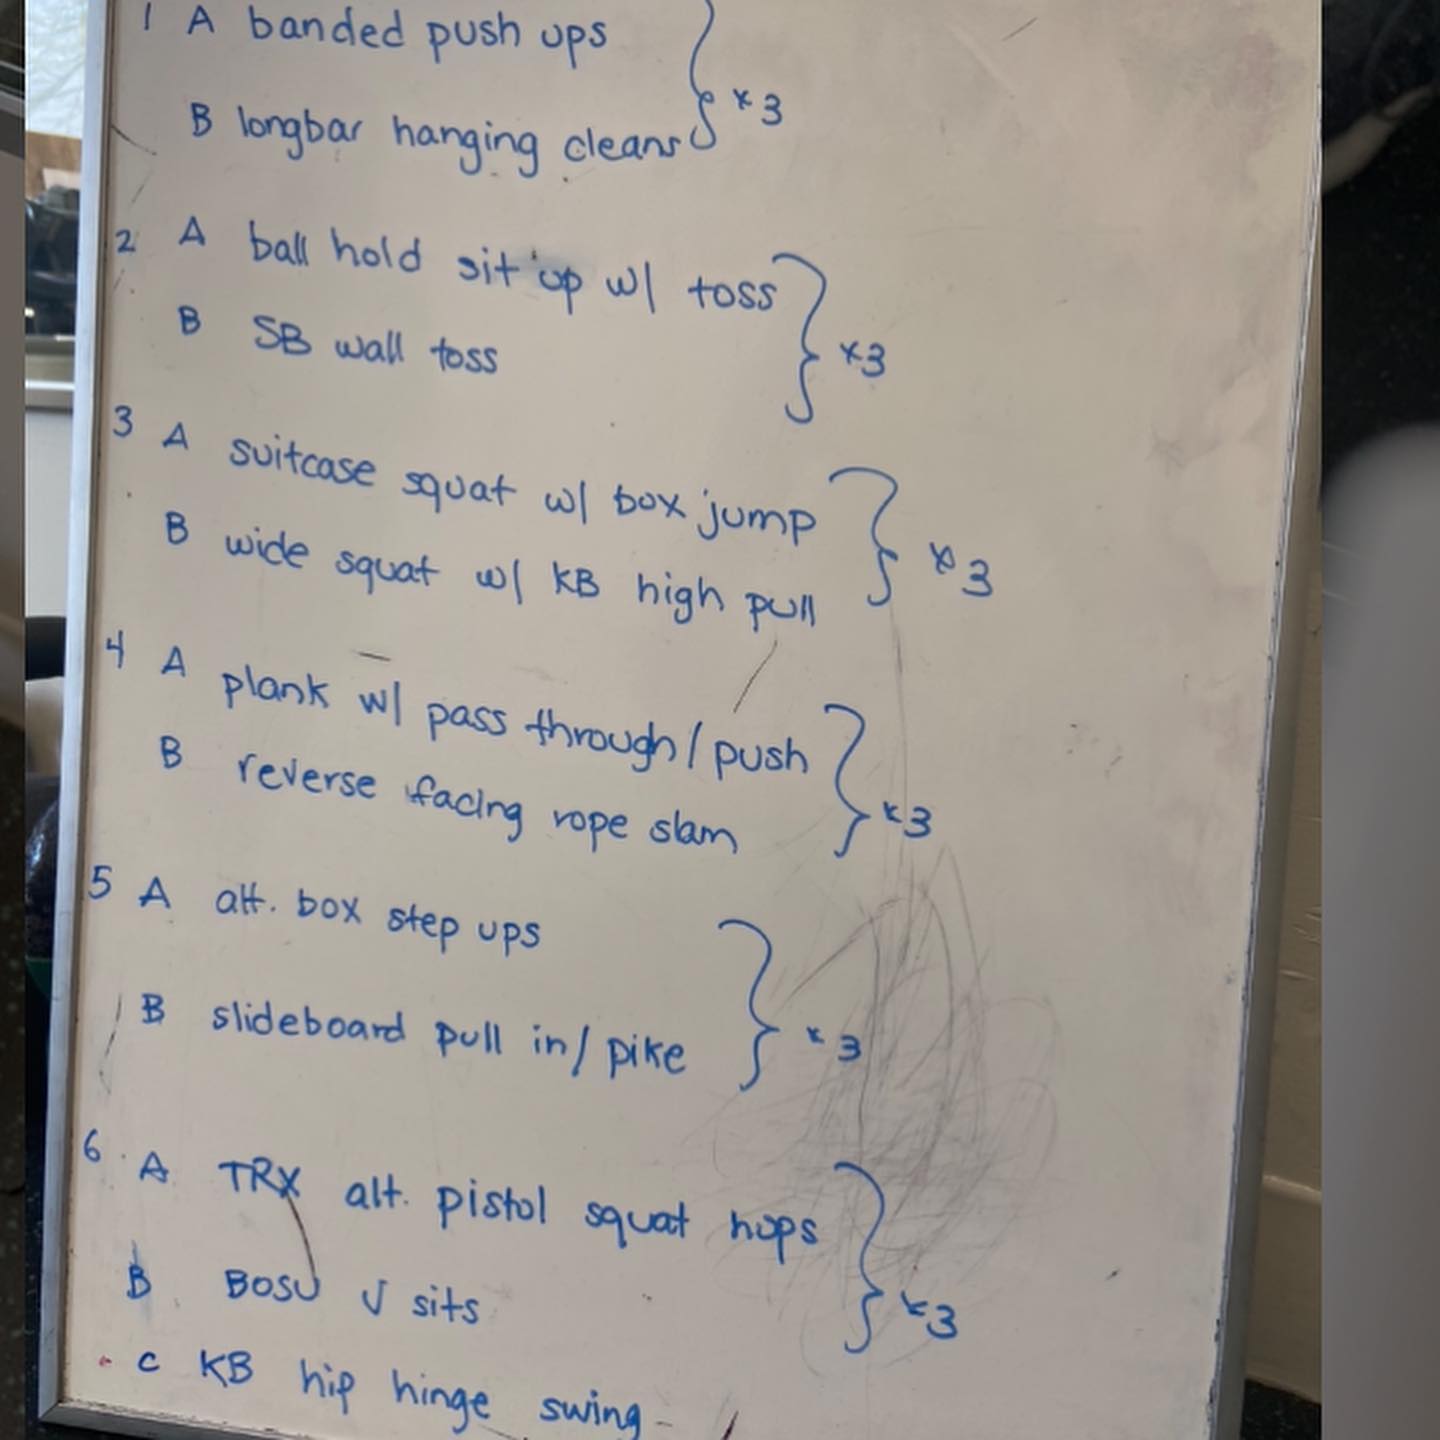 1 A banded push ups
B longbar hanging cleans x3
2 A ball hold sit up w/ toss
B SB wall toss x3
3 A suitcase squat w/ box jump
B wide squat w/ KB high pull x3
4 A plank w/ pass through/push
B reverse facing rope slam x3
5 A alt. box step ups
B slideboard pull in/pike x3
6 A TRX alt. pistol squat hops
B BOSU V sits x3
C KB hip hinge swing